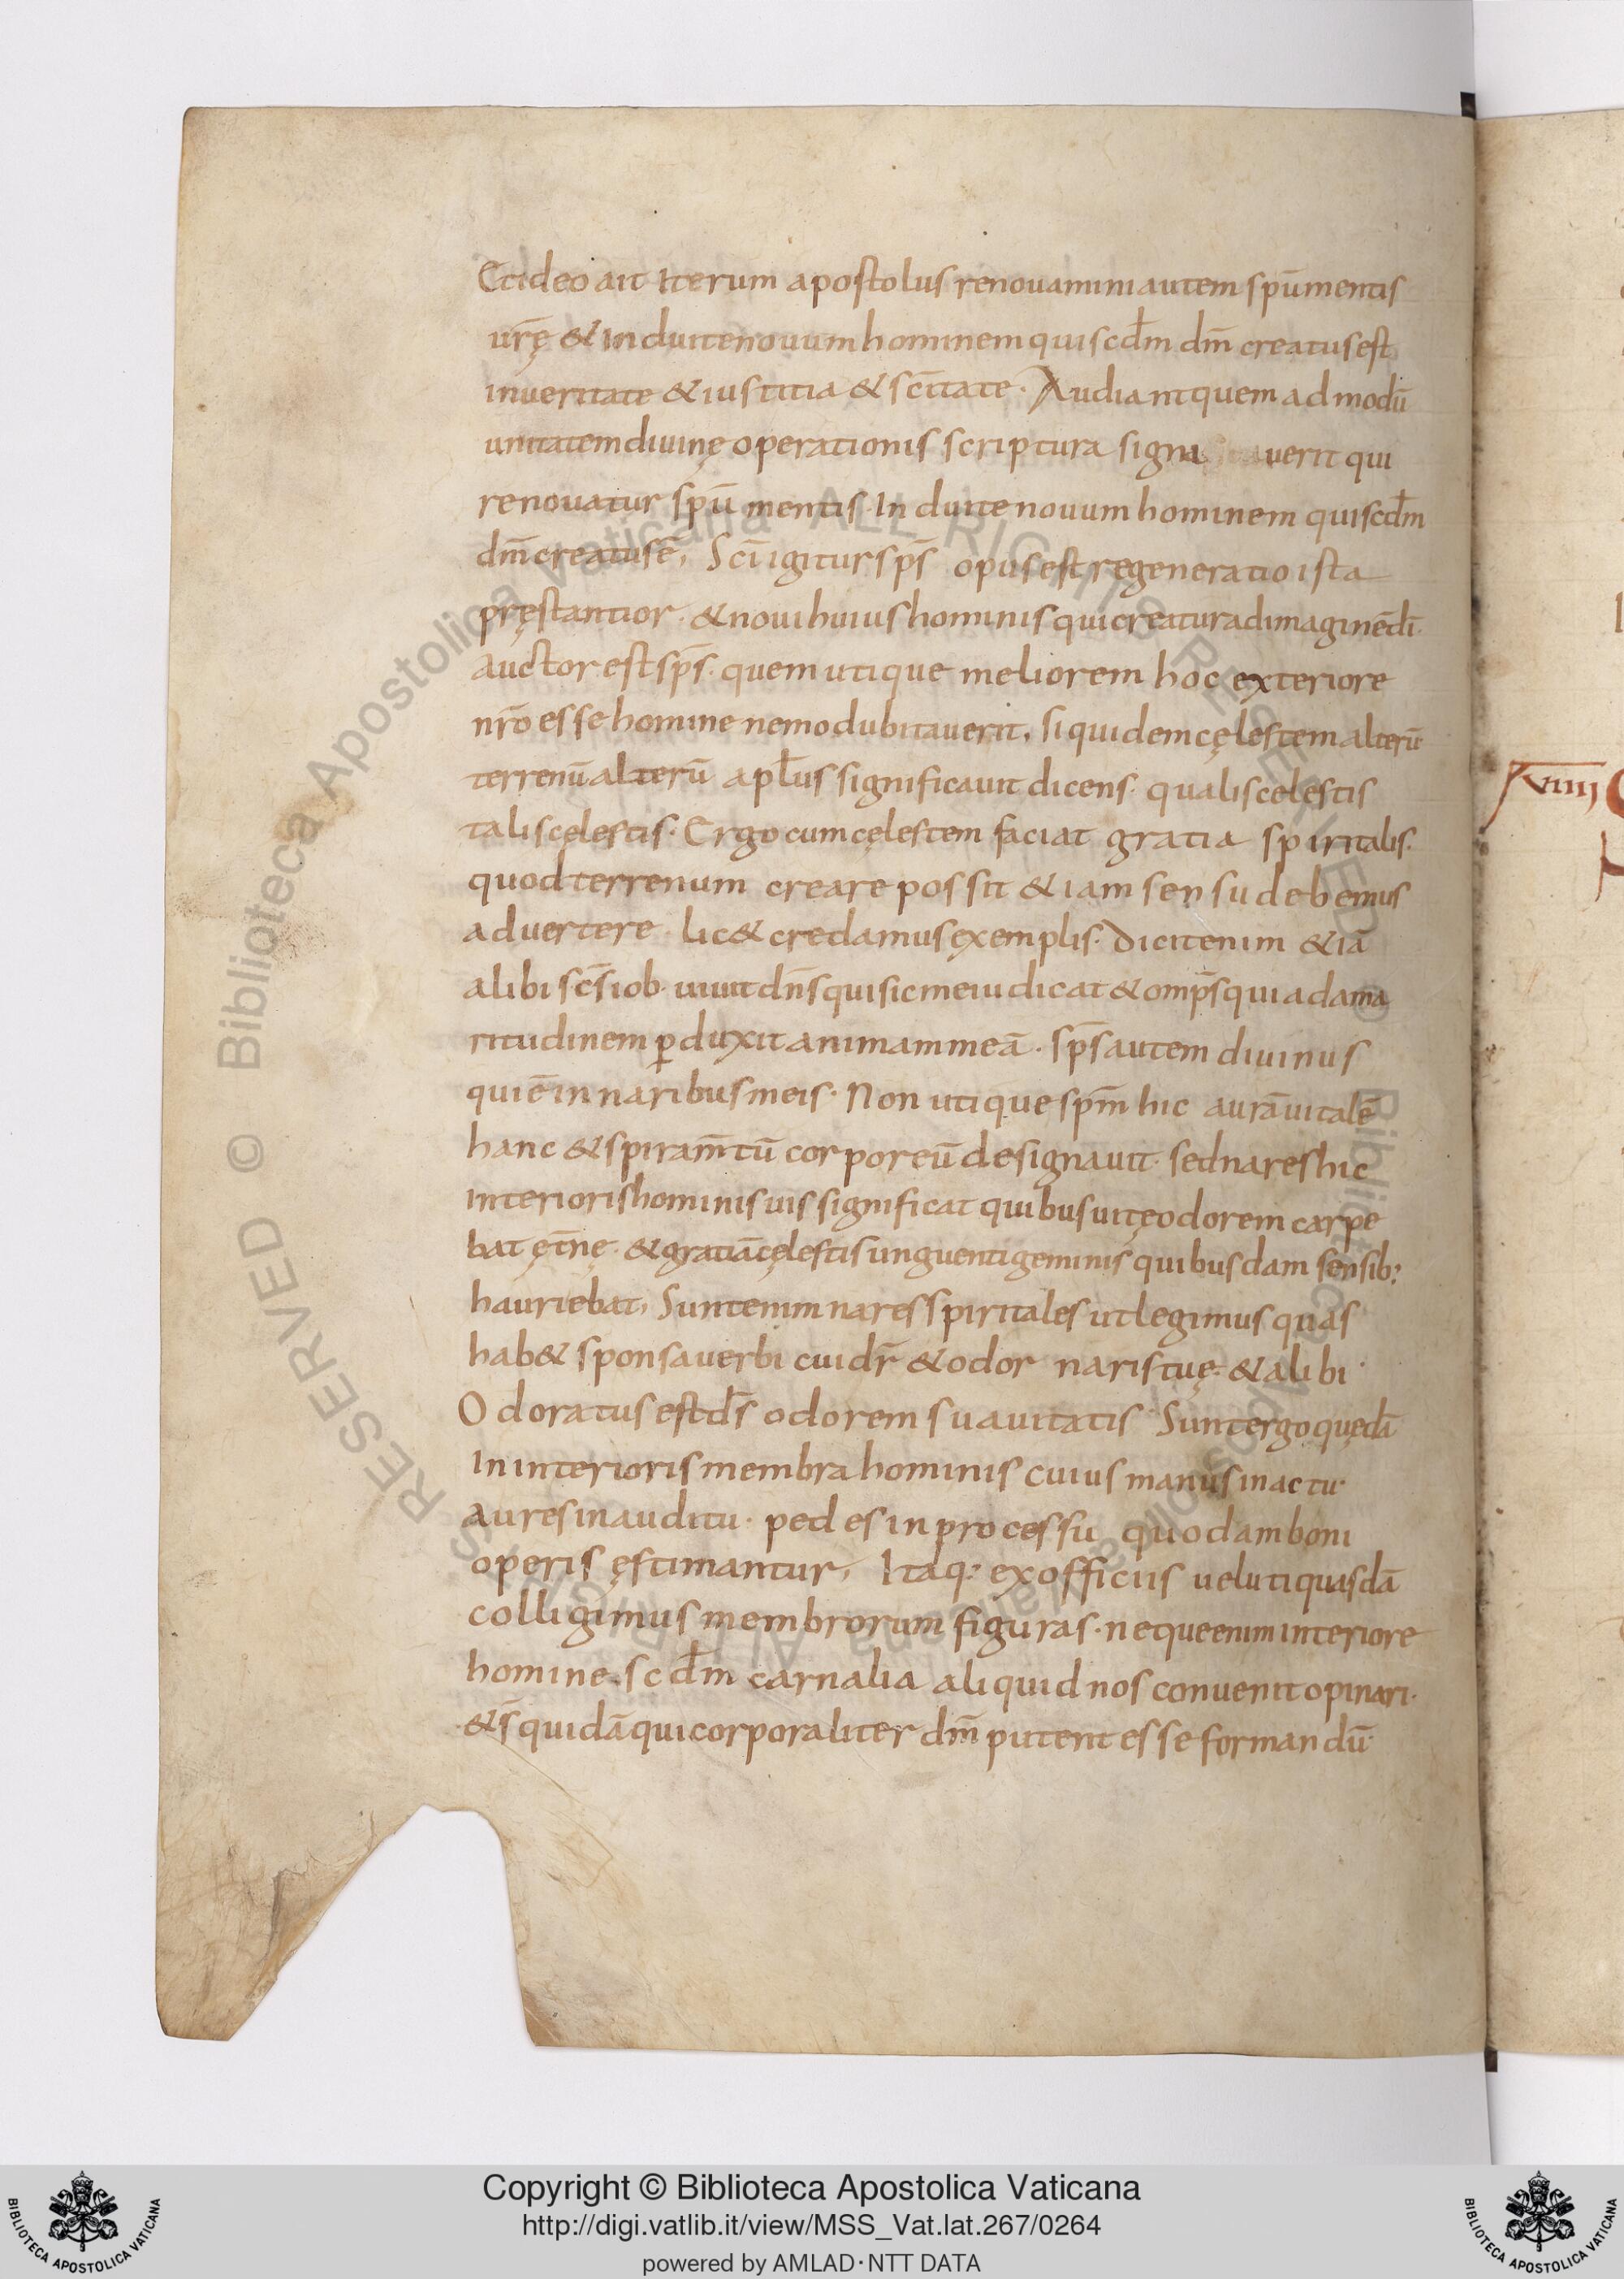 Et ideo ait Iterum apostolus renouamini autem spū mentis
ur̄ę & Induite nouum hominem qui scd̄m dm̄ creatus est
in ueritate & iustitia & scītate · Audiant quem ad modū
unitatem diuinę operationis scriptura signi uerit qui
renouatur spū mentis · Induite nouum hominem qui scd̄m
dm̄ creatus ē, Scī igitur sp̄s opus est regeneratio ista
pręstantior · & noui huius hominis qui creatur ad imaginē dī ·
auctor est sp̄s · quem utique meliorem hoc exteriore
nr̄o esse homine nemo dubitauerit, siquidem cęlestem alterū
terrenū alterū apl̄us significauit dicens · qualis celestis
talis cęlestis · Ergo cum cęlestem faciat gratia spiritalis ·
quod terrenum creare possit & iam sensu debemus
aduertere · lic& credamus exemplis · Dicit enim & iā
alibi sc̄s iob · uiuit dn̄s qui sic me iudicat & omp̄s qui ad ama
ritudinem ꝑduxit animam meā · sp̄s autem diuinus
qui ē in naribus meis · Non utique spm̄ hic aurā uitalē
hanc & spiram̄tū corporeū designauit · sed nares hic
Interioris hominis uis significat quibus uitę odorem carpe
bat ęt̄nę · & gratiā cęlestis unguenti geminis quibusdam sensib;
hauriebat, Sunt enim nares spiritales ut legimus quas
hab& sponsa uerbi cui dr̄ & odor naris tuę · & alibi ·
Odoratus est d̄s odorem suauitatis · Sunt ergo quędā
In interioris membra hominis cuius manus in actu ·
aures in auditu · pedes in processu quodam boni
operis ęstimantur, Itaq; ex officiis ueluti quasdā
colligimus membrorum figuras · neque enim interiore
homine · scd̄m carnalia aliquid nos conuenit opinari ·
&s̄ quidā qui corporaliter dm̄ putent esse formandū
uiiii
Biblioteca Apostolica Vaticana ALL RIGHTS RESERVED ©
Biblioteca Apostolica Vaticana ALL RIGHTS RESERVED ©
Copyright © Biblioteca Apostolica Vaticana
http://digi.vatlib.it/view/MSS_Vat.lat.267/0264
powered by AMLAD·NTT DATA
BIBLIOTECA APOSTOLICA VATICANA
BIBLIOTECA APOSTOLICA VATICANA